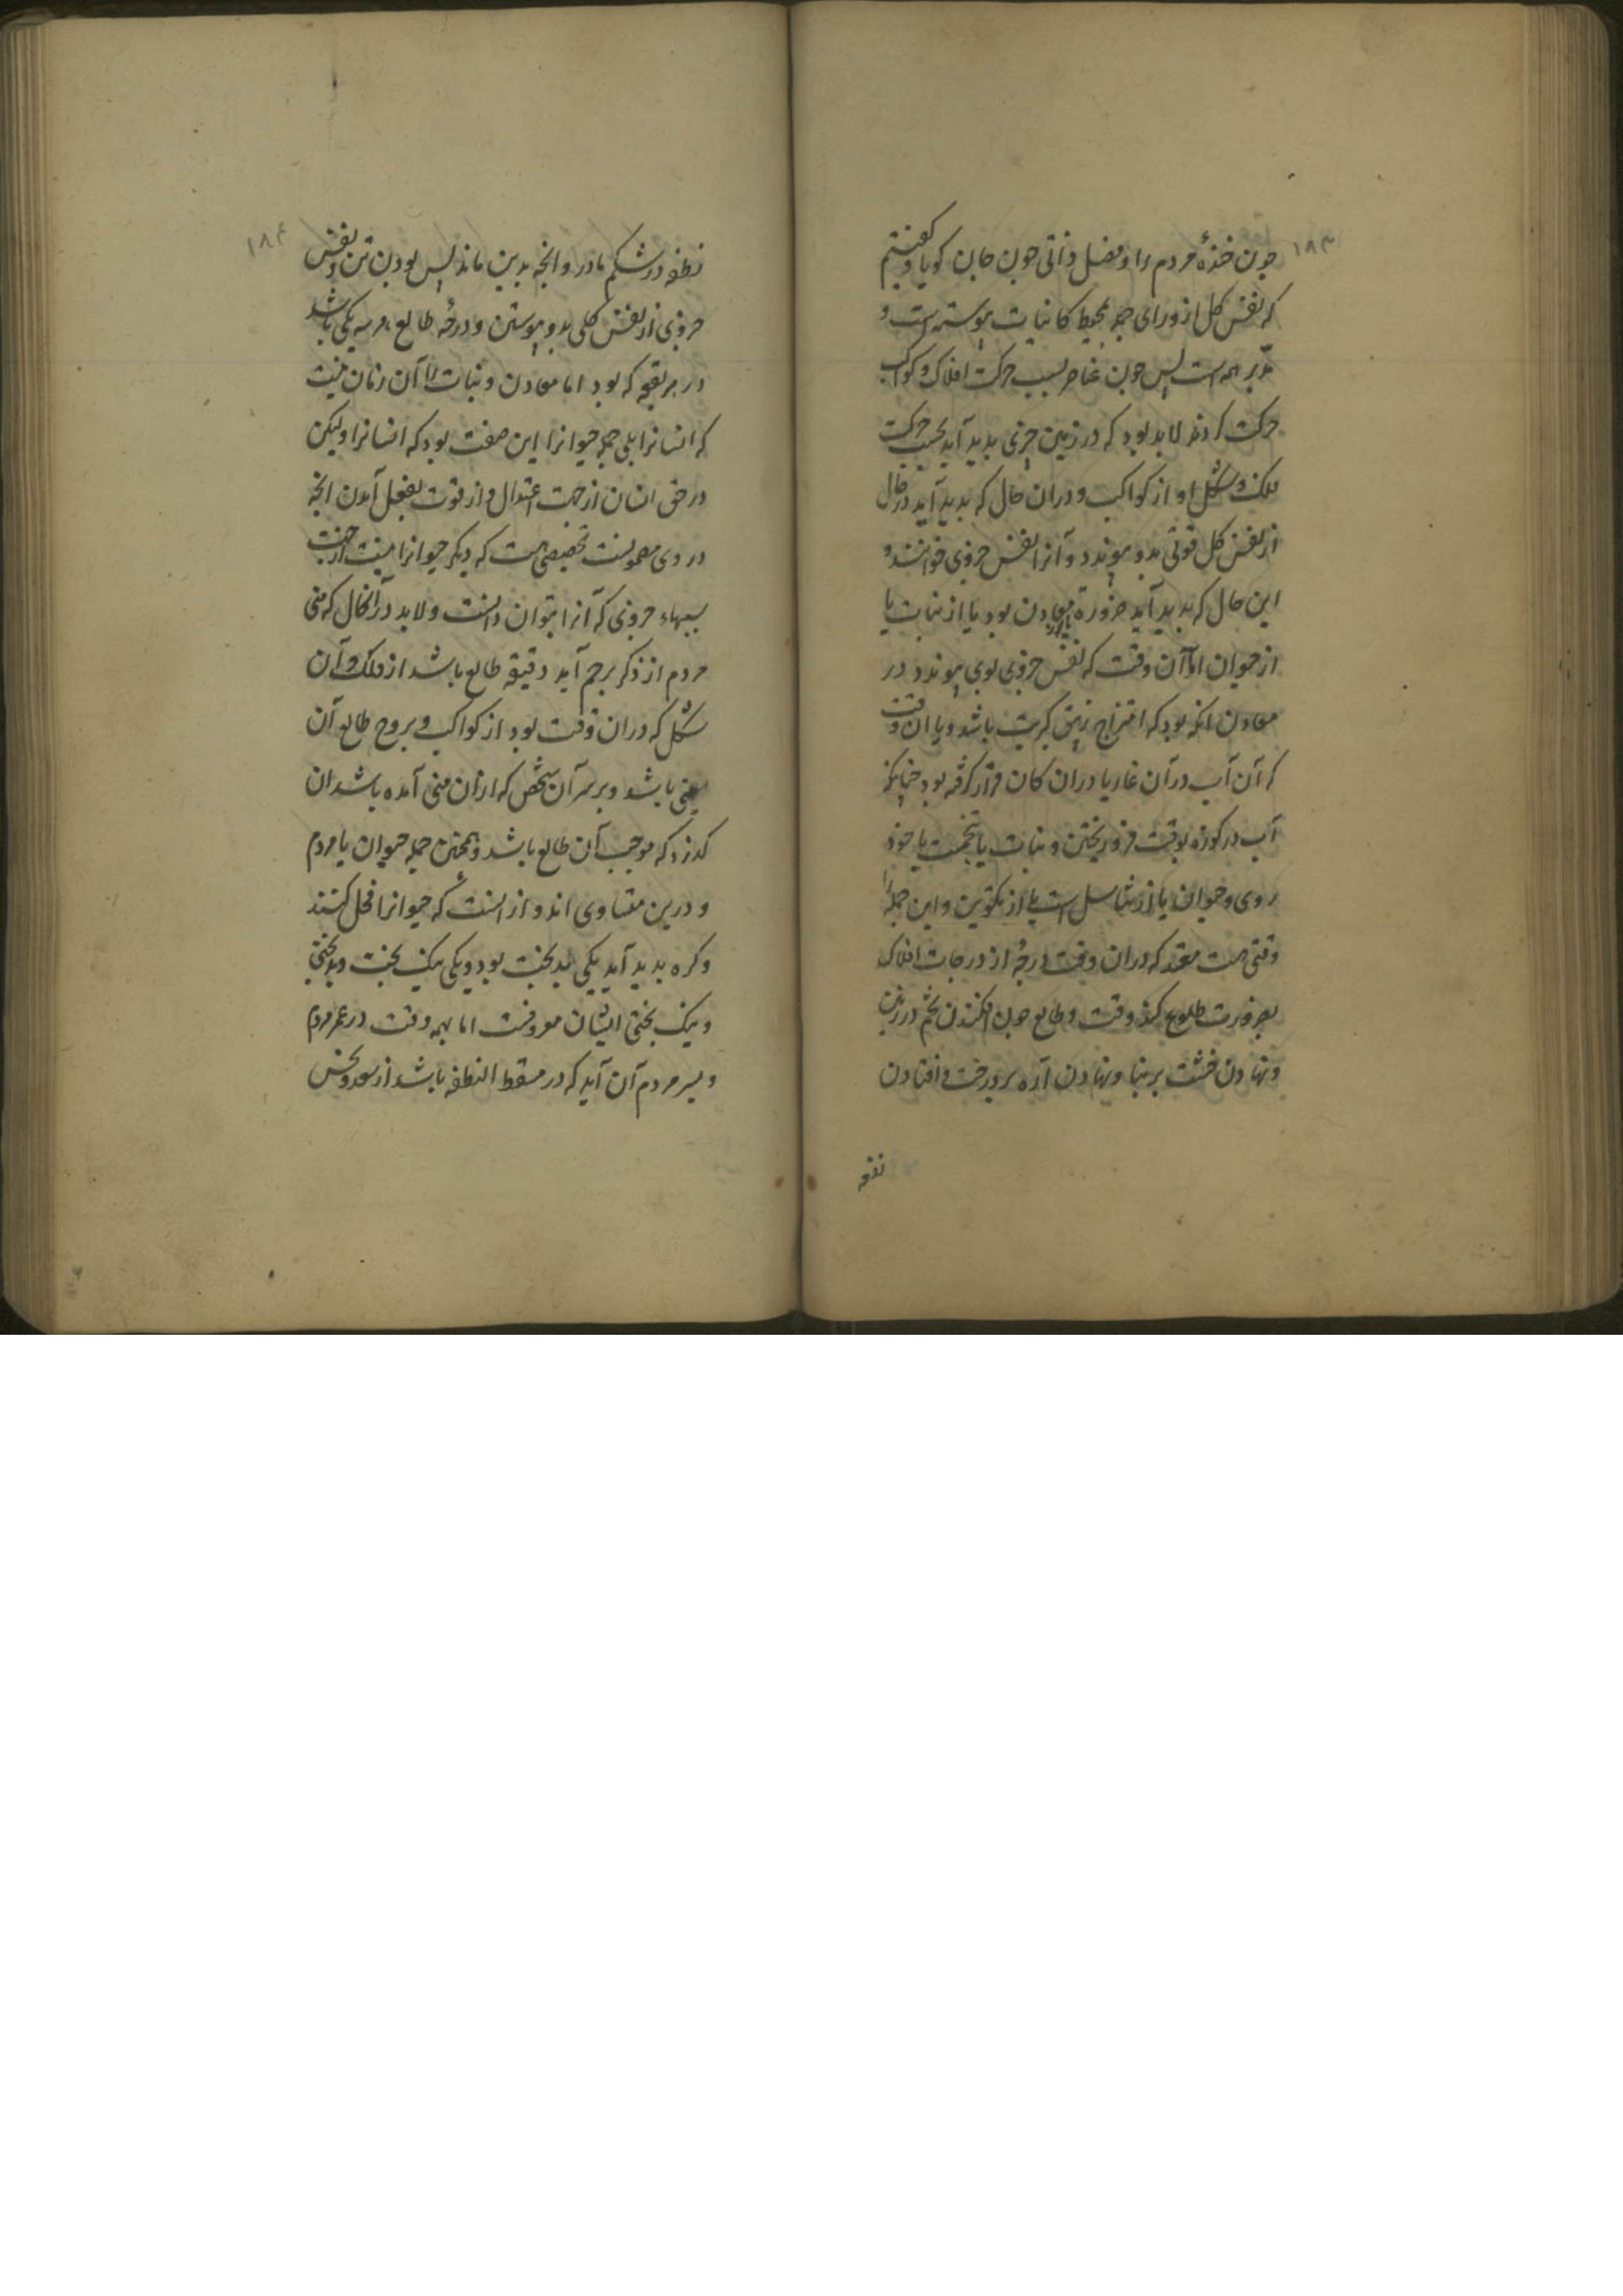 ۱۸۳
چون خندهٔ مردم را و فصل ذاتی چون جان کویا و کفتیم
که نفس کل از ورای جمله محیط کاینات پیوسته است و
مدبر همه است پس چون عناصر بسبب حرکت افلاک و کواکب
حرکت کردند لابد بود که در زمین چیزی پدید آید بحسب حرکت
فلک و شکل او از کواکب و دران حال که پدید آید در حال
از نفس کل قوتی بدو پیوندد و آنرا نفس جزوی خوانند و
این حال که پدید آید ضرورة یا از معادن بود یا از نبات یا
از حیوان اما آن وقت که نفس جزوی بوی پیوندد در
معادن انکه بود که امتزاج زیبق کبریت باشد و یا ان وقت
که آن آب در آن غار یا دران کان قرار کرفته بود چنانکه
آب در کوزه بوقت فرو ریختن و نبات یا بتخمست یا خود
روی و حیوان یا از تناسل است یا از تکوین و این جمله را
وقتی هست مقدر که دران وقت درجهٔ از درجات افلاک
بضرورت طلوع کند وقت و طالع چون افکندن تخم در زمین
و نهادن خشت بر بنا و نهادن اره بر درخت و افتادن
نطفه
۱۸۴
نطفه در شکم مادر و انچه بدین ماند پس بودن تن و نفس
جزوی از نفس کلی بدو پیوستن و درجهٔ طالع هر سه یکی باشد
در هر بقعه که بود اما معادن و نبات را آن زمان نیست
که انسانرا بلی جمله حیوانرا این صفت بود که انسانرا ولیکن
در حق انسان از جهت اعتدال و از قوت بفعل آمدن انچه
در وی معمولست تخصیصی هست که دیکر حیوانرا نیست از جهت
سببهاء جزوی که آنرا بتوان دانست و لابد در آنحال که منی
مردم از ذکر برحم آید دقیقه طالع باشد از فلک و آن
شکل که دران وقت بود از کواکب و بروج طالع آن
منی باشد و بر سر آن شخص که ازان منی آمده باشد ان
کذرد که موجب آن طالع باشد و همچنین جمله حیوان با مردم
و درین متساوی اند و از انست که حیوانرا فحل کنند
و کره پدید آید یکی بدبخت بود و یکی نیک بخت و بدبختی
و نیک بختی ایشان معروفست اما بهمه وقت در عمر مردم
و بسر مردم آن آید که در مسقط النطفه باشد از سعد و نحس